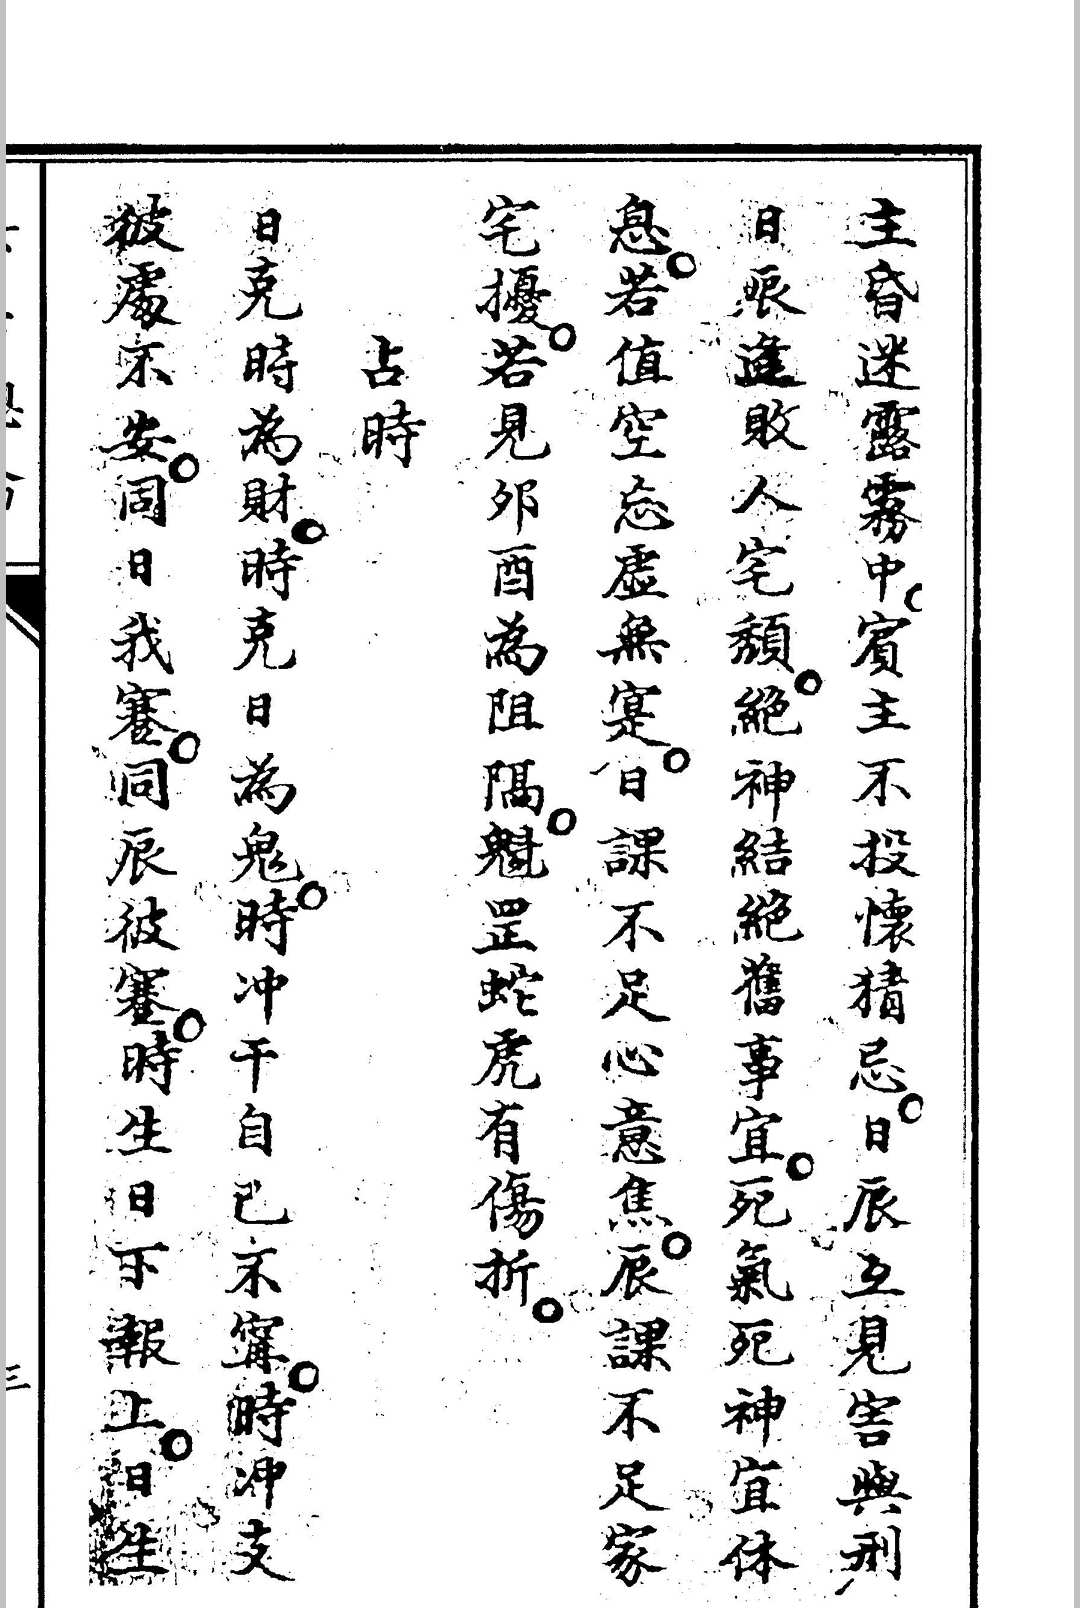 主昏迷露霧中○賔主不投懷猜忌○日辰互見害與刑
日𣊻進敗人宅頹○絕神結絕舊事宜○死氣死神宜休
息○若值空忘虛無寔○日課不足心意焦○辰課不足家
宅擾○若見夘酉為阻隔○魁罡蛇虎有傷折○
占時
日克時為財○時克日為鬼○時冲干自己不寗○時冲支
彼處不安○同日我蹇○同辰彼蹇○時生日下報上○日生